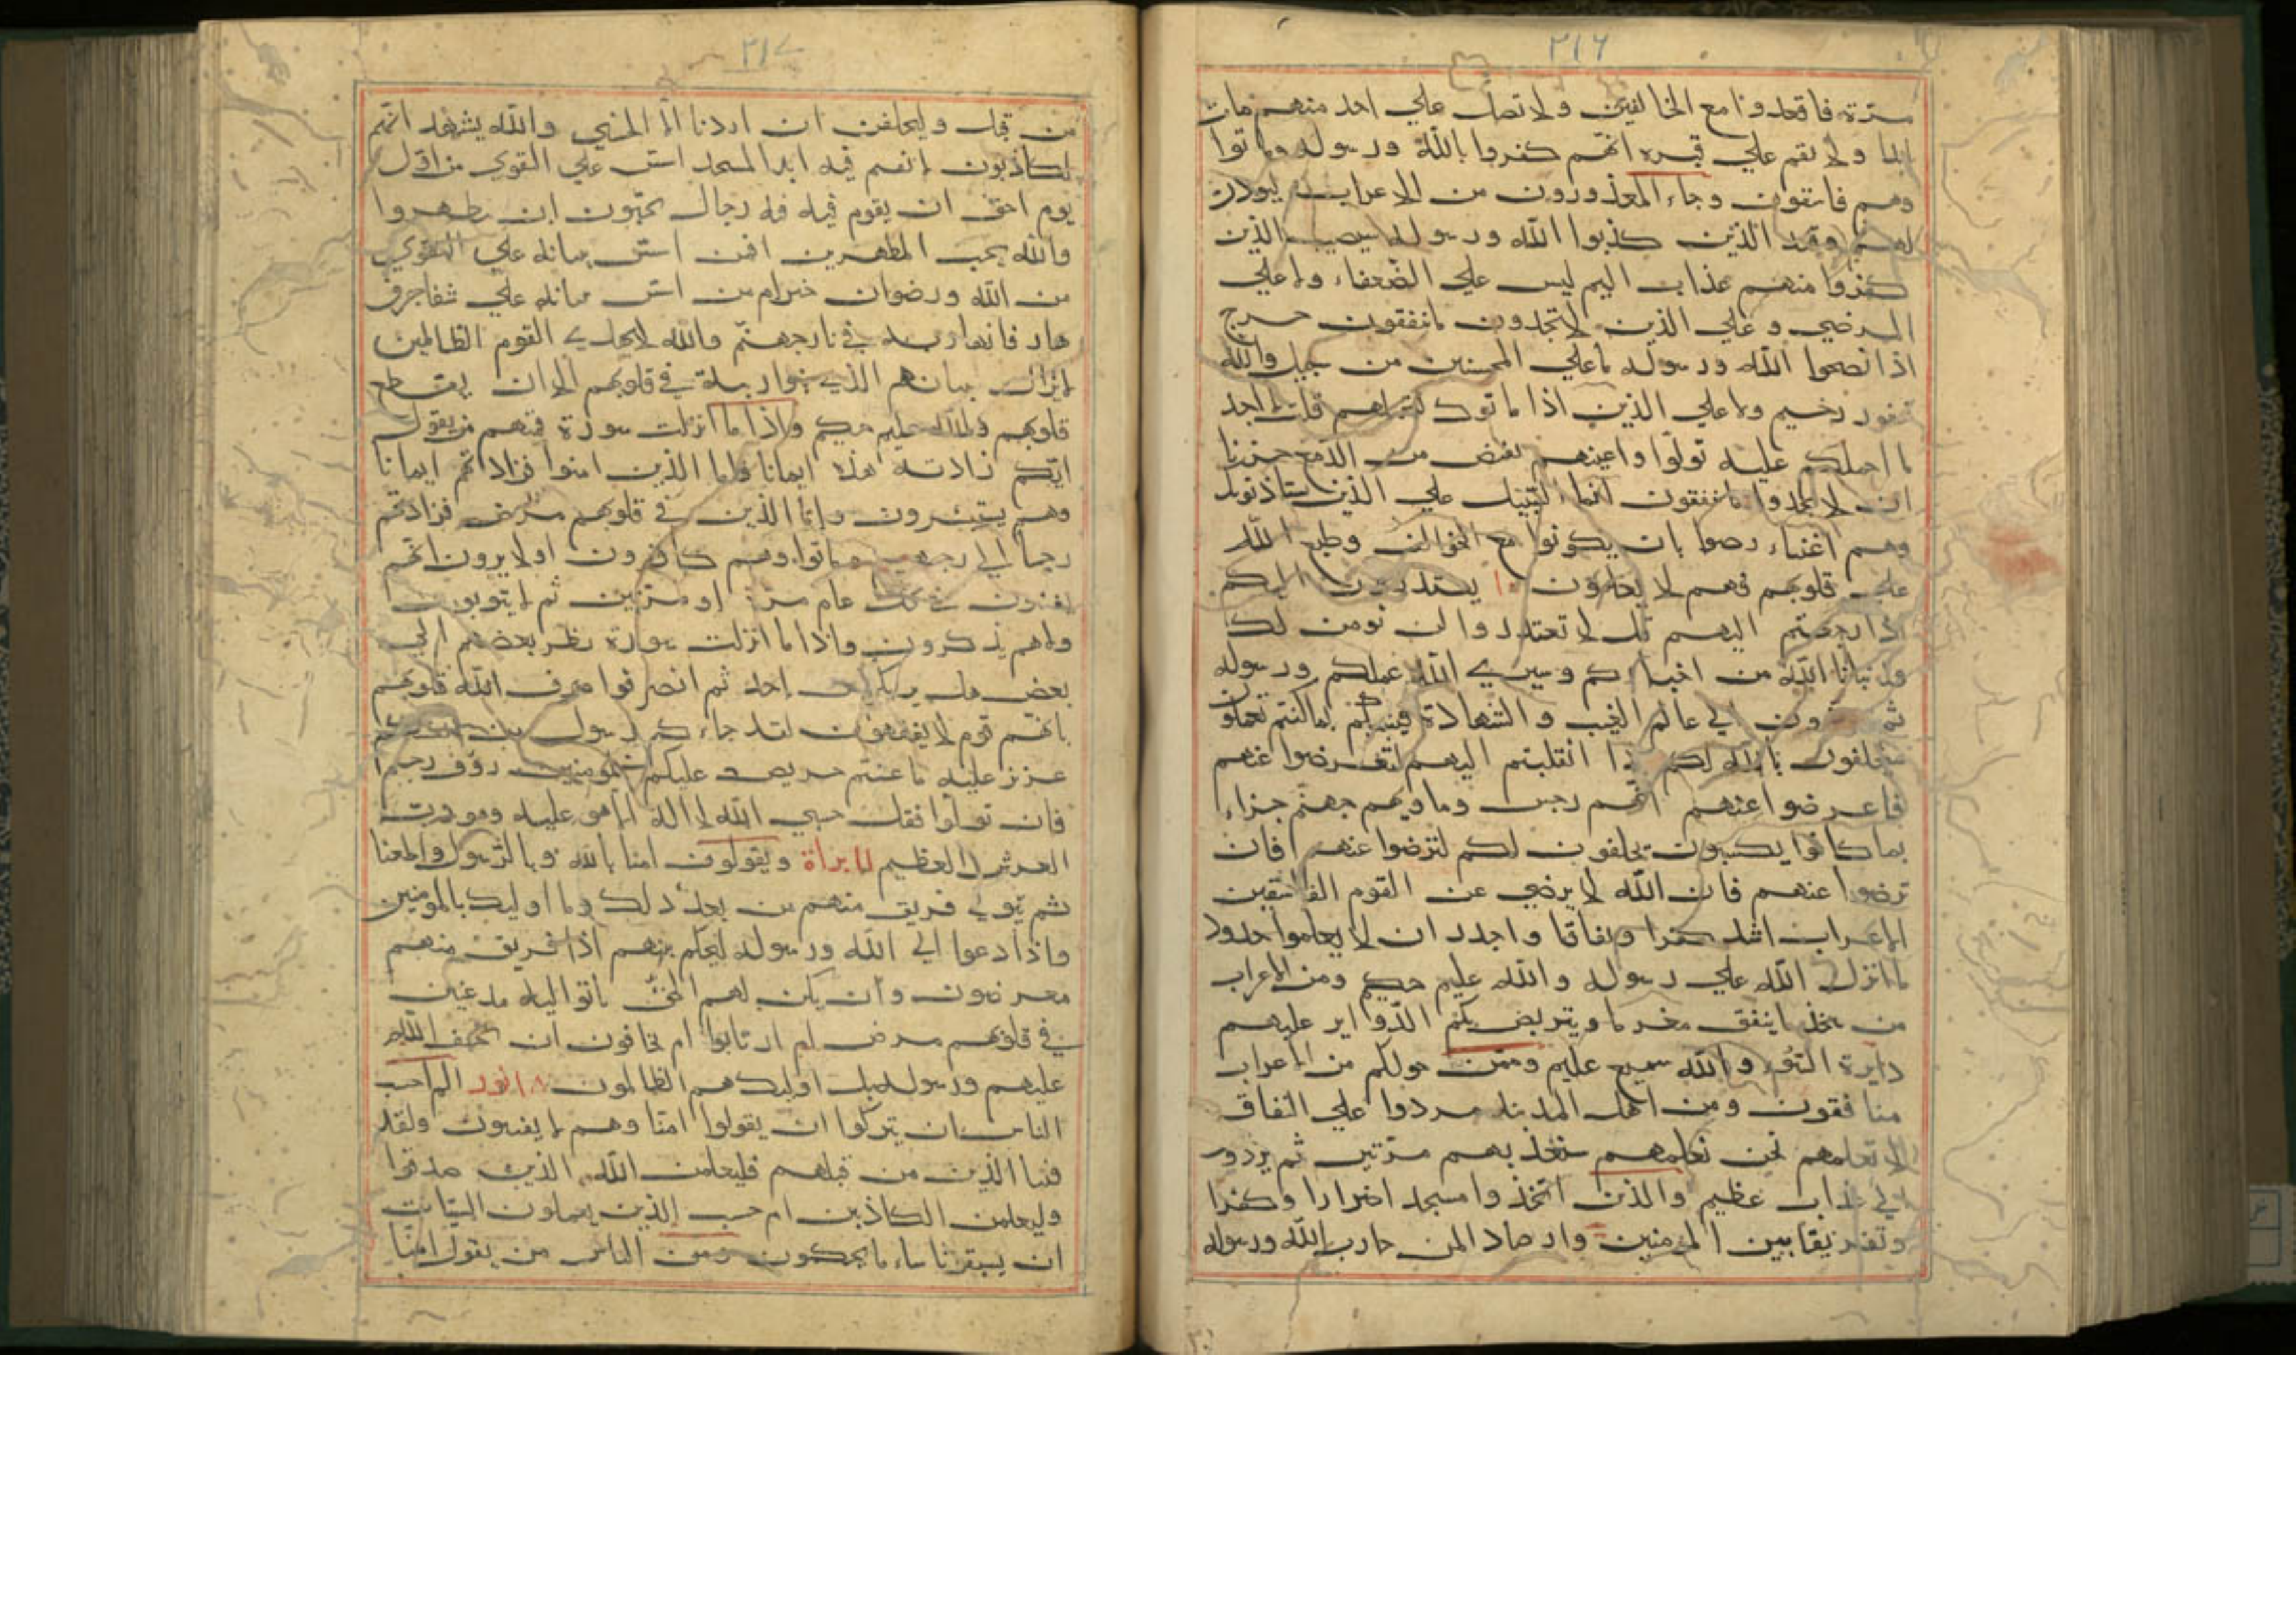 ٢١٦
مرة فاقعدوا مع الخالفين ولا تصل علي احد منهم مات
ابدا ولا تقم علي قبره انهم كفروا بالله ورسوله وماتوا
وهم فاسقون وجاء المعذرون من الاعراب ليوذن
لهم وقعد الذين كذبوا الله ورسوله سيصيب الذين
كفروا منهم عذاب اليم ليس علي الضعفاء ولا علي
المرضي و علي الذين لا تجدون ما ينفقون حرج
اذا نصحوا الله ورسوله ما علي المحسنين من سبيل والله
غفور رحيم ولا علي الذين اذا ما اتوك لتحملهم قلت لا اجد
ما احملكم عليه تولوا واعينهم تفيض من الدمع حزنا
ان لا يجدوا ما ينفقون انما السبيل علي الذين يستاذنونك
وهم اغنياء رضوا بان يكونوا مع الخوالف وطبع الله
علي قلوبهم فهم لا يعلمون يعتذرون اليكم
اذا رجعتم اليهم قل لا تعتذروا لن نومن لكم
قد نبانا الله من اخباركم وسيري الله عملكم ورسوله
ثم تردون الي عالم الغيب والشهادة فينبئكم بما كنتم تعملون
سيحلفون بالله لكم اذا انقلبتم اليهم لتعرضوا عنهم
فاعرضوا عنهم انهم رجس وماويهم جهنم جزاء
بما كانوا يكسبون يحلفون لكم لترضوا عنهم فان
ترضوا عنهم فان الله لا يرضي عن القوم الفاسقين
الاعراب اشد كفرا ونفاقا واجدر ان لا يعلموا حدود
ما انزل الله علي رسوله والله عليم حكيم ومن الاعراب
من يتخذ ما ينفق مغرما ويتربص بكم الدواير عليهم
دايرة السوء والله سميع عليم وممن حولكم من الاعراب
منافقون ومن اهل المدينة مردوا علي النفاق
لا تعلمهم نحن نعلمهم سنعذبهم مرتين ثم يردون
الي عذاب عظيم والذين اتخذوا مسجدا ضرارا وكفرا
وتفريقا بين المومنين وارصادا لمن حارب الله ورسوله
٢١٧
من قبل وليحلفن ان اردنا الا الحسني والله يشهد انهم
لكاذبون لا تقم فيه ابدا لمسجد اسس علي التقوي من اول
يوم احق ان يقوم فيه فيه رجال يحبون ان يتطهروا
والله يحب المطهرين افمن اسس بنيانه علي التقوي
من الله ورضوان خير ام من اسس بنيانه علي شفا جرف
هار فانهار به في نار جهنم والله لا يهدي القوم الظالمين
لا يزال بنيانهم الذي بنوا ريبة في قلوبهم الا ان يقطع
قلوبهم والله عليم حكيم واذا ما انزلت سورة فمنهم من يقول
ايكم زادته هذه ايمانا فاما الذين امنوا فزادتهم ايمانا
وهم يستبشرون واما الذين في قلوبهم مرض فزادتهم
رجسا الي رجسهم وماتوا وهم كافرون اولا يرون انهم
يفتنون في كل عام مرة او مرتين ثم لا يتوبون
ولا هم يذكرون واذا ما انزلت سورة نظر بعضهم الي
بعض هل يريكم من احد ثم انصرفوا صرف الله قلوبهم
بانهم قوم لا يفقهون لقد جاءكم رسول من انفسكم
عزيز عليه ما عنتم حريص عليكم بالمومنين رؤف رحيم
فان تولوا فقل حسبي الله لا اله الا هو عليه وهو رب
العرش العظيم براة ويقولون امنا بالله وبالرسول واطعنا
ثم يتولي فريق منهم من بعد ذلك وما اوليك بالمومنين
واذا دعوا الي الله ورسوله ليحكم بينهم اذا فريق منهم
معرضون وان يكن لهم الحق ياتوا اليه مذعنين
في قلوبهم مرض ام ارتابوا ام يخافون ان يحيف الله
عليهم ورسوله بل اوليك هم الظالمون النور الم احسب
الناس ان يتركوا ان يقولوا امنا وهم لا يفتنون ولقد
فتنا الذين من قبلهم فليعلمن الله الذين صدقوا
وليعلمن الكاذبين ام حسب الذين يعملون السيات
ان يسبقونا ساء ما يحكمون ومن الناس من يقول امنا